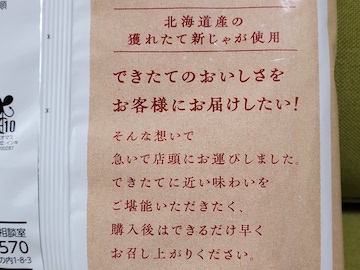 北海道産の
獲れたて新じゃが使用
できたてのおいしさを
お客様にお届けしたい!
そんな想いで
急いで店頭にお運びしました。
できたてに近い味わいを
ご堪能いただきたく、
購入後はできるだけ早く
お召し上がりください。
順
相談室
570
の内1-8-3